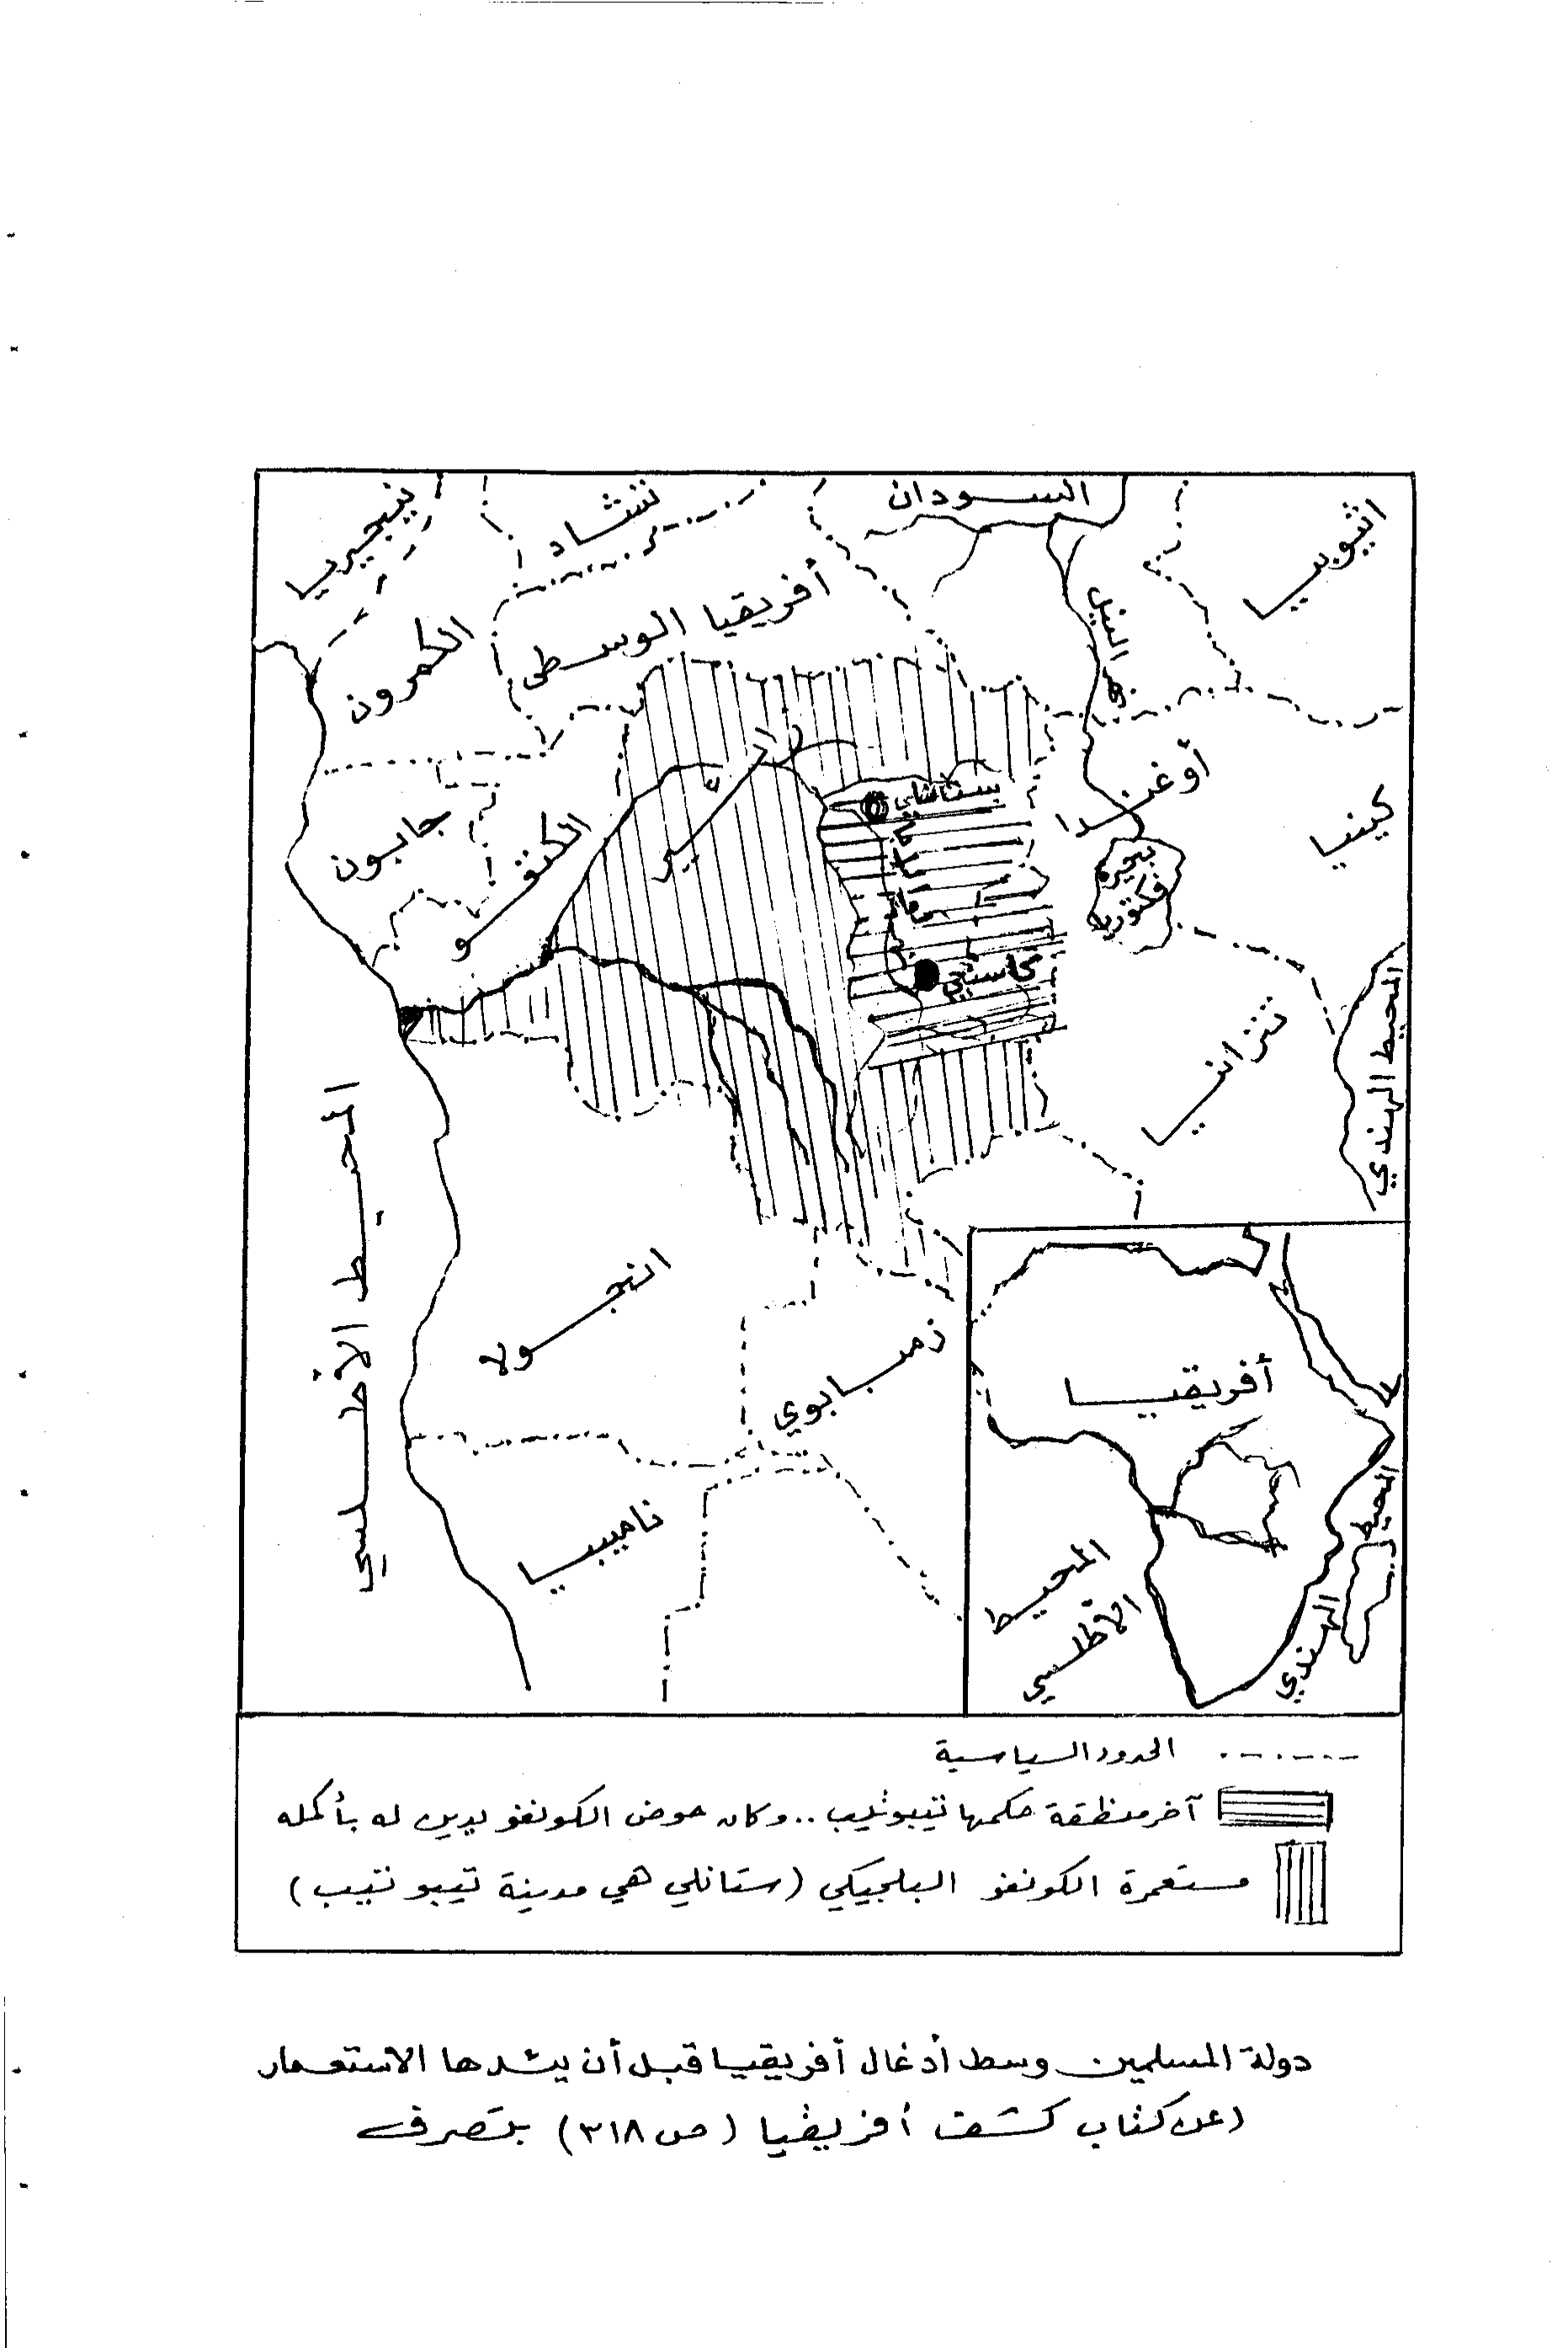 نيجيريا
تشاد
السودان
اثيوبيا
الكمرون
أفريقيا الوسطى
النيل
أوغندا
كينيا
جابون
الكنغو
زائير
ستانلي
بحيرة
فكتوريا
كاسنجي
تنزانيا
المحيط الهندي
المحيط الأطلسي
انجولا
زمبابوي
ناميبيا
أفريقيا
المحيط
الأطلسي
المحيط
الهندي
الحدود السياسية
آخر منطقة حكمها تيبوتيب .. وكان حوض الكونغو يدين له بأكمله
مستعمرة الكونغو البلجيكي (ستانلي هي مدينة تيبو تيب)
دولة المسلمين وسط أدغال أفريقيا قبل أن يئدها الاستعمار
(عن كتاب كشف أفريقيا (ص ٣١٨) بتصرف